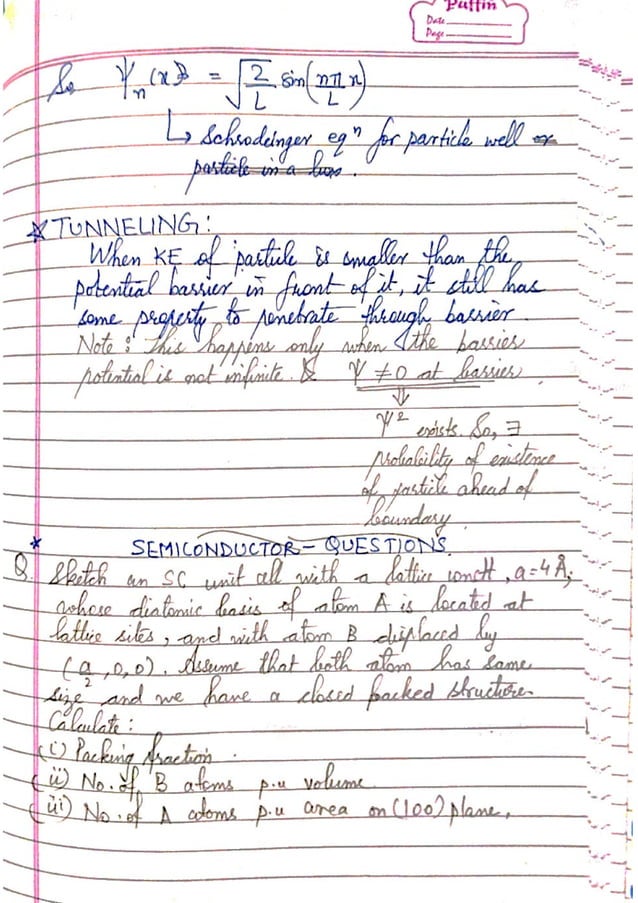 Puffin
Date
Page
So Ψn(x) = √(2/L) sin(nπx/L)
↳ Schrodeinger eqⁿ for particle well or
particle in a box.
* TUNNELING:
When KE of particle is smaller than the
potential barrier in front of it, it still has
some property to penetrate through barrier.
Note: This happens only when the barrier
potential is not infinite. & Ψ ≠ 0 at barrier
⇓
Ψ² exists. So, ∃
probability of existence
of particle ahead of
boundary
* SEMICONDUCTOR - QUESTIONS
Q. Sketch an SC unit cell with a lattice constt, a=4Å,
whose diatomic basis of atom A is located at
lattice sites, and with atom B displaced by
(a/2,0,0). Assume that both atom has same
size and we have a closed packed structure.
Calculate:
(i) Packing fraction.
(ii) No. of B atoms p.u volume
(iii) No. of A atoms p.u area on (100) plane.